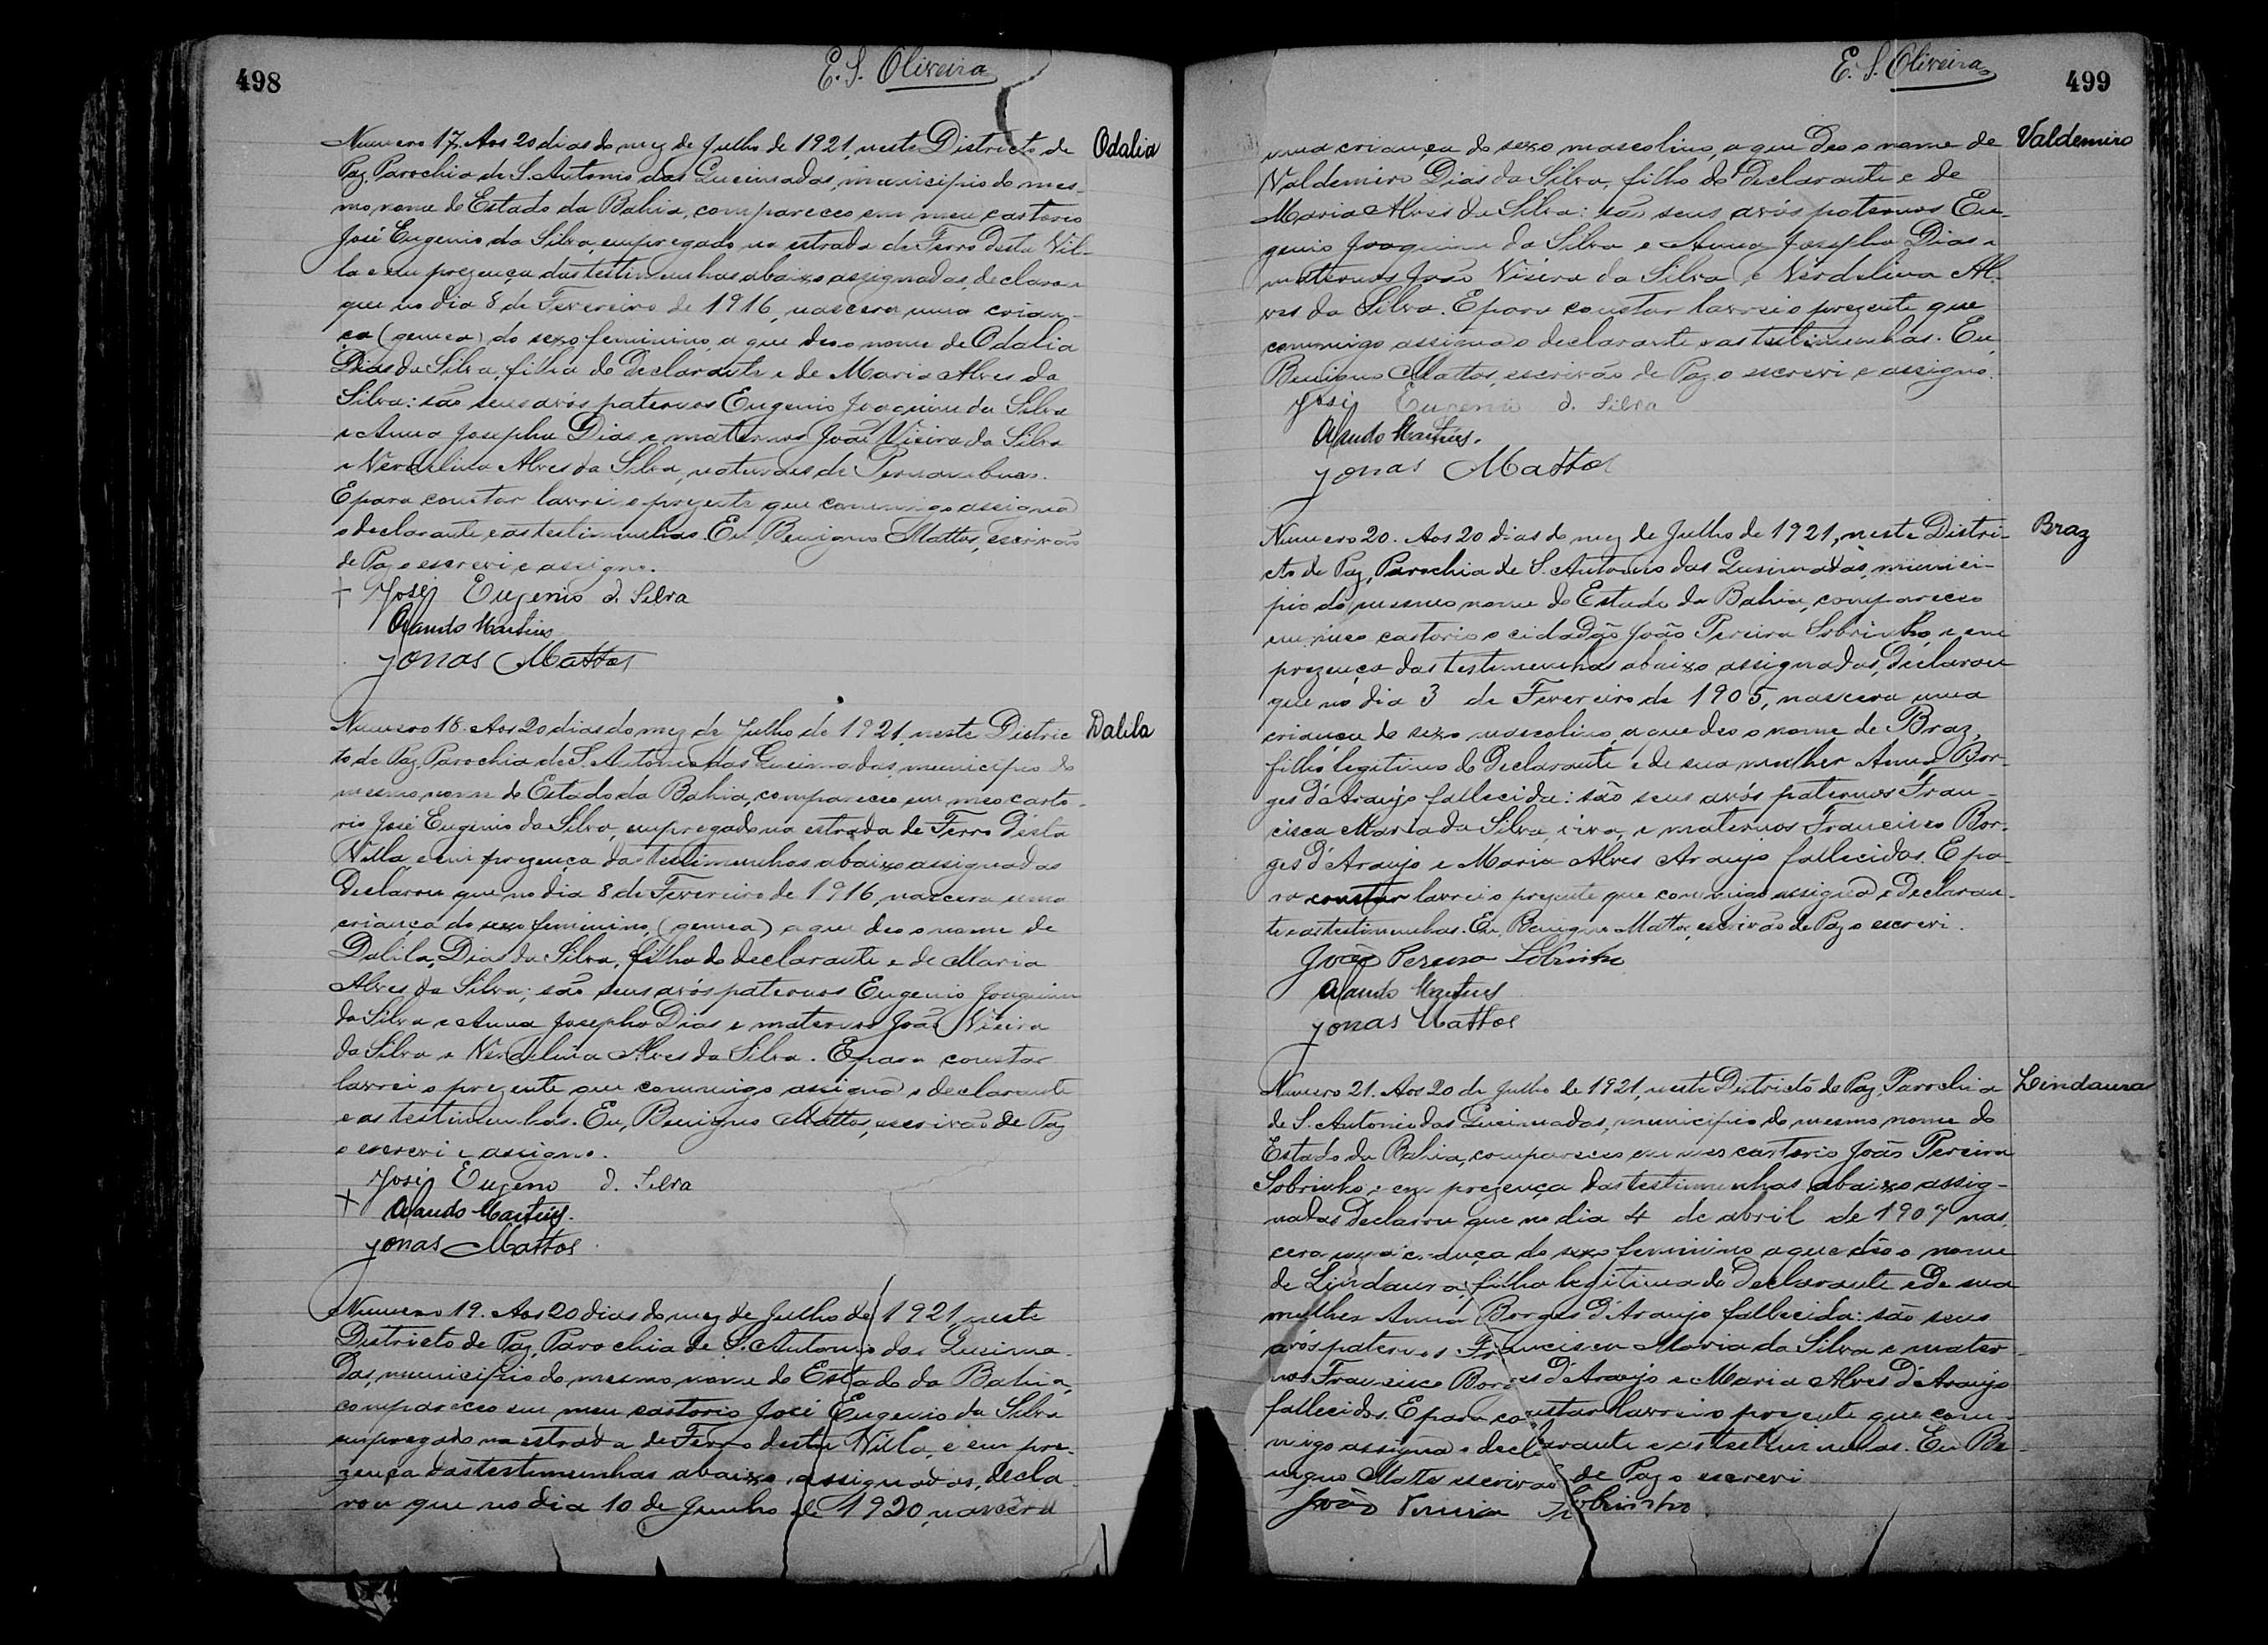 498
E. S. Oliveira
Numero 17. Aos 20 dias do mez de Julho de 1921, neste Districto de
Odalia
Paz, Parochia de S. Antonio das Queimadas, municipio do mes-
mo nome do Estado da Bahia, compareceo em meu cartorio
José Eugenio da Silva, empregado na estrada de Ferro desta Vil-
la e em prezença das testimunhas abaixo assignadas, declarou
que no dia 8 de Fevereiro de 1916, nascera uma crian-
ça (gemea) do sexo feminino, a que deo o nome de Odalia
Dias da Silva, filha do Declarante e de Maria Alves da
Silva: são seus avós paternos Eugenio Joaquim da Silva
e Anna Josepha Dias e maternos João Vieira da Silva
e Verdelina Alves da Silva, naturaes de Pernambuco.
E para constar lavrei o prezente que commigo assigna
o declarante e as testimunhas. Eu, Benigno Mattos, escrivão
de Paz o escrevi e assigno.
José Eugenio d. Silva
Martins
Jonas Mattos
Numero 18. Aos 20 dias do mez de Julho de 1921, neste Distric
Dalila
to de Paz, Parochia de S. Antonio das Queimadas, municipio do
mesmo nome do Estado da Bahia, compareceo em meo carto-
rio José Eugenio da Silva, empregado na estrada de Ferro desta
Villa, e em prezença das testimunhas abaixo assignadas
Declarou que no dia 8 de Fevereiro de 1916, nascera uma
criança do sexo feminino, (gemea) a que deo o nome de
Dalila Dias da Silva, filha do declarante e de Maria
Alves da Silva; são seus avós paternos Eugenio Joaquim
da Silva e Anna Josepha Dias e maternos João Vieira
da Silva e Verdelina Alves da Silva. E para constar
lavrei o prezente que commigo assigna o declarante
e as testimunhas. Eu, Benigno Mattos, escrivão de Paz
o escrevi e assigno.
José Eugeno d. Silva
Martins
Jonas Mattos
Numero 19. Aos 20 dias do mez de Julho de 1921, neste
Districto de Paz, Parochia de S. Antonio das Queima-
das, municipio do mesmo nome do Estado da Bahia,
compareceo em meu cartorio José Eugenio da Silva
empregado na estrada de Ferro desta Villa, e em pre-
zença das testimunhas abaixo assignadas, decla-
rou que no dia 10 de Junho de 1920, nascera
499
E. S. Oliveira
uma criança do sexo masculino, a que deo o nome de
Valdemiro
Valdemiro Dias da Silva, filho do Declarante e de
Maria Alves da Silva: são seus avós paternos Eu-
genio Joaquim da Silva e Anna Josepha Dias e
maternos João Vieira da Silva e Verdelina Al-
ves da Silva. E para constar lavrei o prezente que
commigo assigna o declarante e as testimunhas. Eu,
Benigno Mattos, escrivão de Paz o escrevi e assigno.
José Eugenio d. Silva
Martins.
Jonas Mattos
Numero 20. Aos 20 dias do mez de Julho de 1921, neste Distri-
Braz
cto de Paz, Parochia de S. Antonio das Queimadas, munici-
pio do mesmo nome do Estado da Bahia, compareceo
em meo cartorio o cidadão João Pereira Sobrinho, e em
prezença das testimunhas abaixo assignadas, Declarou
que no dia 3 de Fevereiro de 1905, nascera uma
criança do sexo masculino, a que deo o nome de Braz,
filho legitimo do Declarante e de sua mulher Anna Bor-
ges d'Araujo fallecida: são seus avós paternos Fran-
cisca Maria da Silva, viva, e maternos Francisco Bor-
ges d'Araujo e Maria Alves Araujo fallecidos. E pa-
ra constar lavrei o prezente que commigo assigna o Declaran-
te e as testimunhas. Eu, Benigno Mattos, escrivão de Paz o escrevi.
João Pereira Sobrinho
Martins
Jonas Mattos
Numero 21. Aos 20 de Julho de 1921, neste Districto de Paz, Parochia
Lindaura
de S. Antonio das Queimadas, municipio do mesmo nome do
Estado da Bahia, compareceo em meo cartorio João Pereira
Sobrinho e em prezença das testimunhas abaixo assig-
nadas Declarou que no dia 4 de abril de 1907 nas
cera uma criança do sexo feminino a que deo o nome
de Lindaura, filha legitima do Declarante e de sua
mulher Anna Borges d'Araujo fallecida: são seus
avós paternos Francisca Maria da Silva e mater-
nos Francisco Borges d'Araujo e Maria Alves d'Araujo
fallecidos. E para constar lavrei o prezente que com-
migo assigna o declarante e as testimunhas. Eu Be-
nigno Mattos escrivão de Paz o escrevi
João Pereira Sobrinho